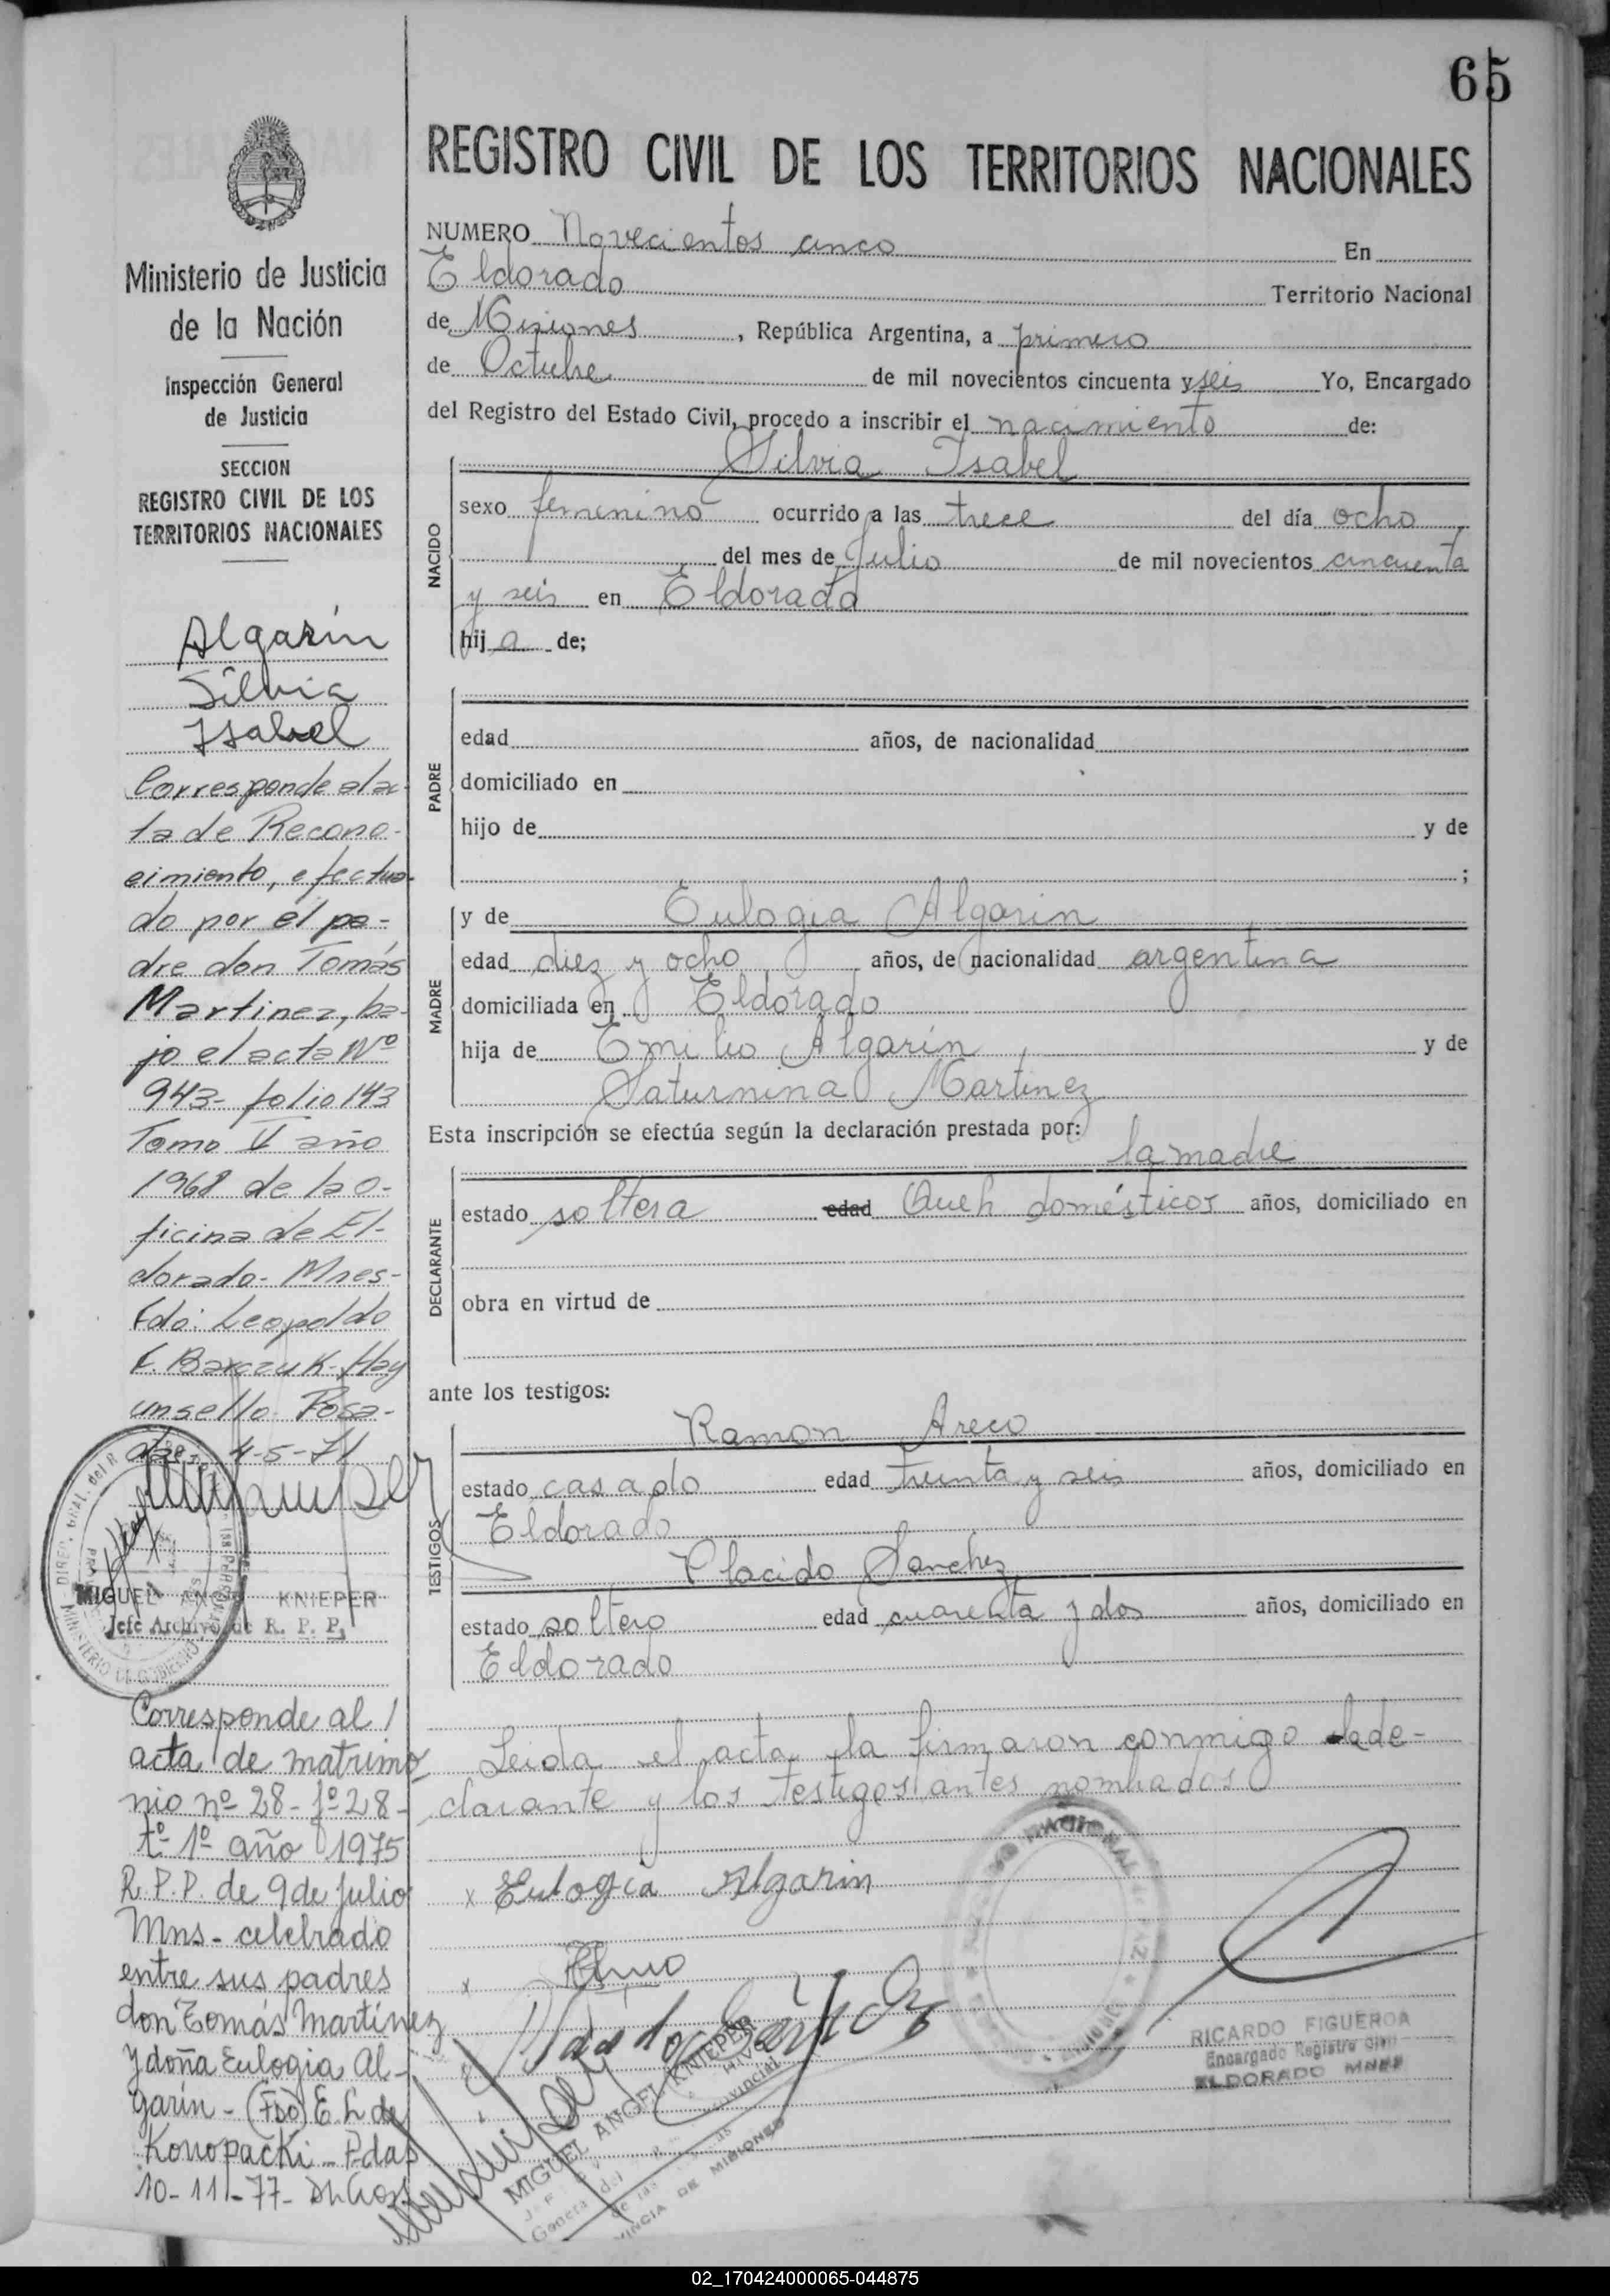 65
REGISTRO CIVIL DE LOS TERRITORIOS NACIONALES
Ministerio de Justicia
de la Nación
Inspección General
de Justicia
SECCION
REGISTRO CIVIL DE LOS
TERRITORIOS NACIONALES
Algarín
Silvia
Isabel
Corresponde al ac-
ta de Recono-
cimiento, efectua-
do por el pa-
dre don Tomás
Martinez, ba-
jo el acta Nº
943- folio 143
Tomo V año
1968 de la O-
ficina de El-
dorado- Mnes-
Fdo: Leopoldo
F. Barczuk- Hay
un sello- Posa-
das- 4-5-71
MIGUEL ANGEL KNIEPER
Jefe Archivo de R. P. P.
Corresponde al /
acta de matrimo-
nio nº 28- fº 28-
tº 1º año 1975
R.P.P. de 9 de Julio
Mns- celebrado
entre sus padres
don Tomás Martínez
y doña Eulogia Al-
garín- (FDO) E. L. de
Konopacki- Pdas
10-11-77-
NUMERO Novecientos cinco En
Eldorado Territorio Nacional
de Misiones, República Argentina, a primero
de Octubre de mil novecientos cincuenta y seis Yo, Encargado
del Registro del Estado Civil, procedo a inscribir el nacimiento de:
Silvia Isabel
NACIDO
sexo femenino ocurrido a las trece del día ocho
del mes de Julio de mil novecientos cincuenta
y seis en Eldorado
hija de;
PADRE
edad años, de nacionalidad
domiciliado en
hijo de y de
;
MADRE
y de Eulogia Algarin
edad diez y ocho años, de nacionalidad argentina
domiciliada en Eldorado
hija de Emilio Algarín y de
Saturnina Martinez
Esta inscripción se efectúa según la declaración prestada por:
la madre
DECLARANTE
estado soltera edad Queh domésticos años, domiciliado en
obra en virtud de
ante los testigos:
TESTIGOS
Ramon Areco
estado casado edad treinta y seis años, domiciliado en
Eldorado
Placido Sanchez
estado soltero edad cuarenta y dos años, domiciliado en
Eldorado
Leida el acta la firmaron conmigo la de-
clarante y los testigos antes nombrados
x Eulogia Algarin
x
RICARDO FIGUEROA
Encargado Registro Civil
ELDORADO MNES
MIGUEL ANGEL KNIEPER
02_170424000065-044875